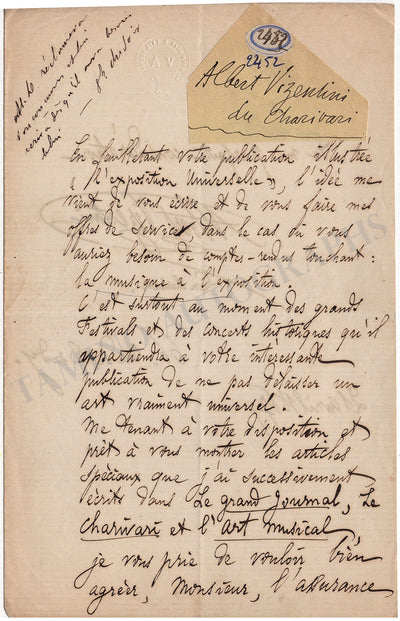 2452
2452
Albert Vizentini
du Charivari
En feuilletant votre publication illustrée
« l'exposition Universelle », l'idée me
vient de vous écrire et de vous faire mes
offres de services dans le cas où vous
auriez besoin de comptes-rendus touchant :
la musique à l'exposition.
C'est surtout au moment des grands
Festivals et des concerts historiques qu'il
appartiendra à votre intéressante
publication de ne pas délaisser un
art vraiment universel.
Me tenant à votre disposition et
prêt à vous montrer les articles
spéciaux que j'ai successivement
écrits dans Le grand Journal, Le
Charivari et l'Art musical,
je vous prie de vouloir bien
agréer, Monsieur, l'assurance
TAMINO AUTOGRAPHS